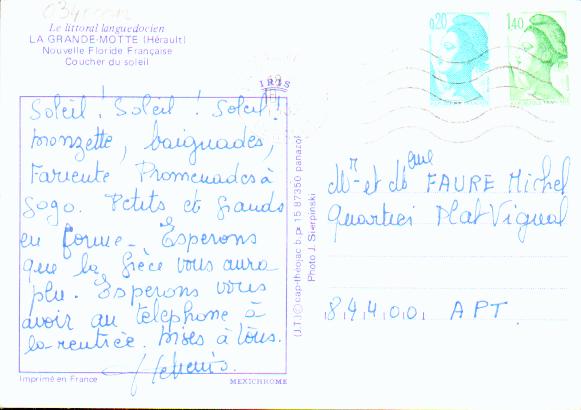 Le littoral languedocien
LA GRANDE-MOTTE (Hérault)
Nouvelle Floride Française
Coucher du soleil
0,20
1,40
IRIS
Soleil! Soleil! Soleil!
Monzette, baignades,
Fariente Promenades à
gogo. Petits et grands
en forme - Esperons
que la Grèce vous aura
plu. Esperons vous
avoir au telephone à
la rentrée. Mises à tous.
Mr et Mme FAURE Michel
Quartier Plat Vignal
84400 APT.
(J.T.) © cap-théojac b.p. 15 87350 panazol
Photo J. Sierpinski
Imprimé en France
MEXICHROME